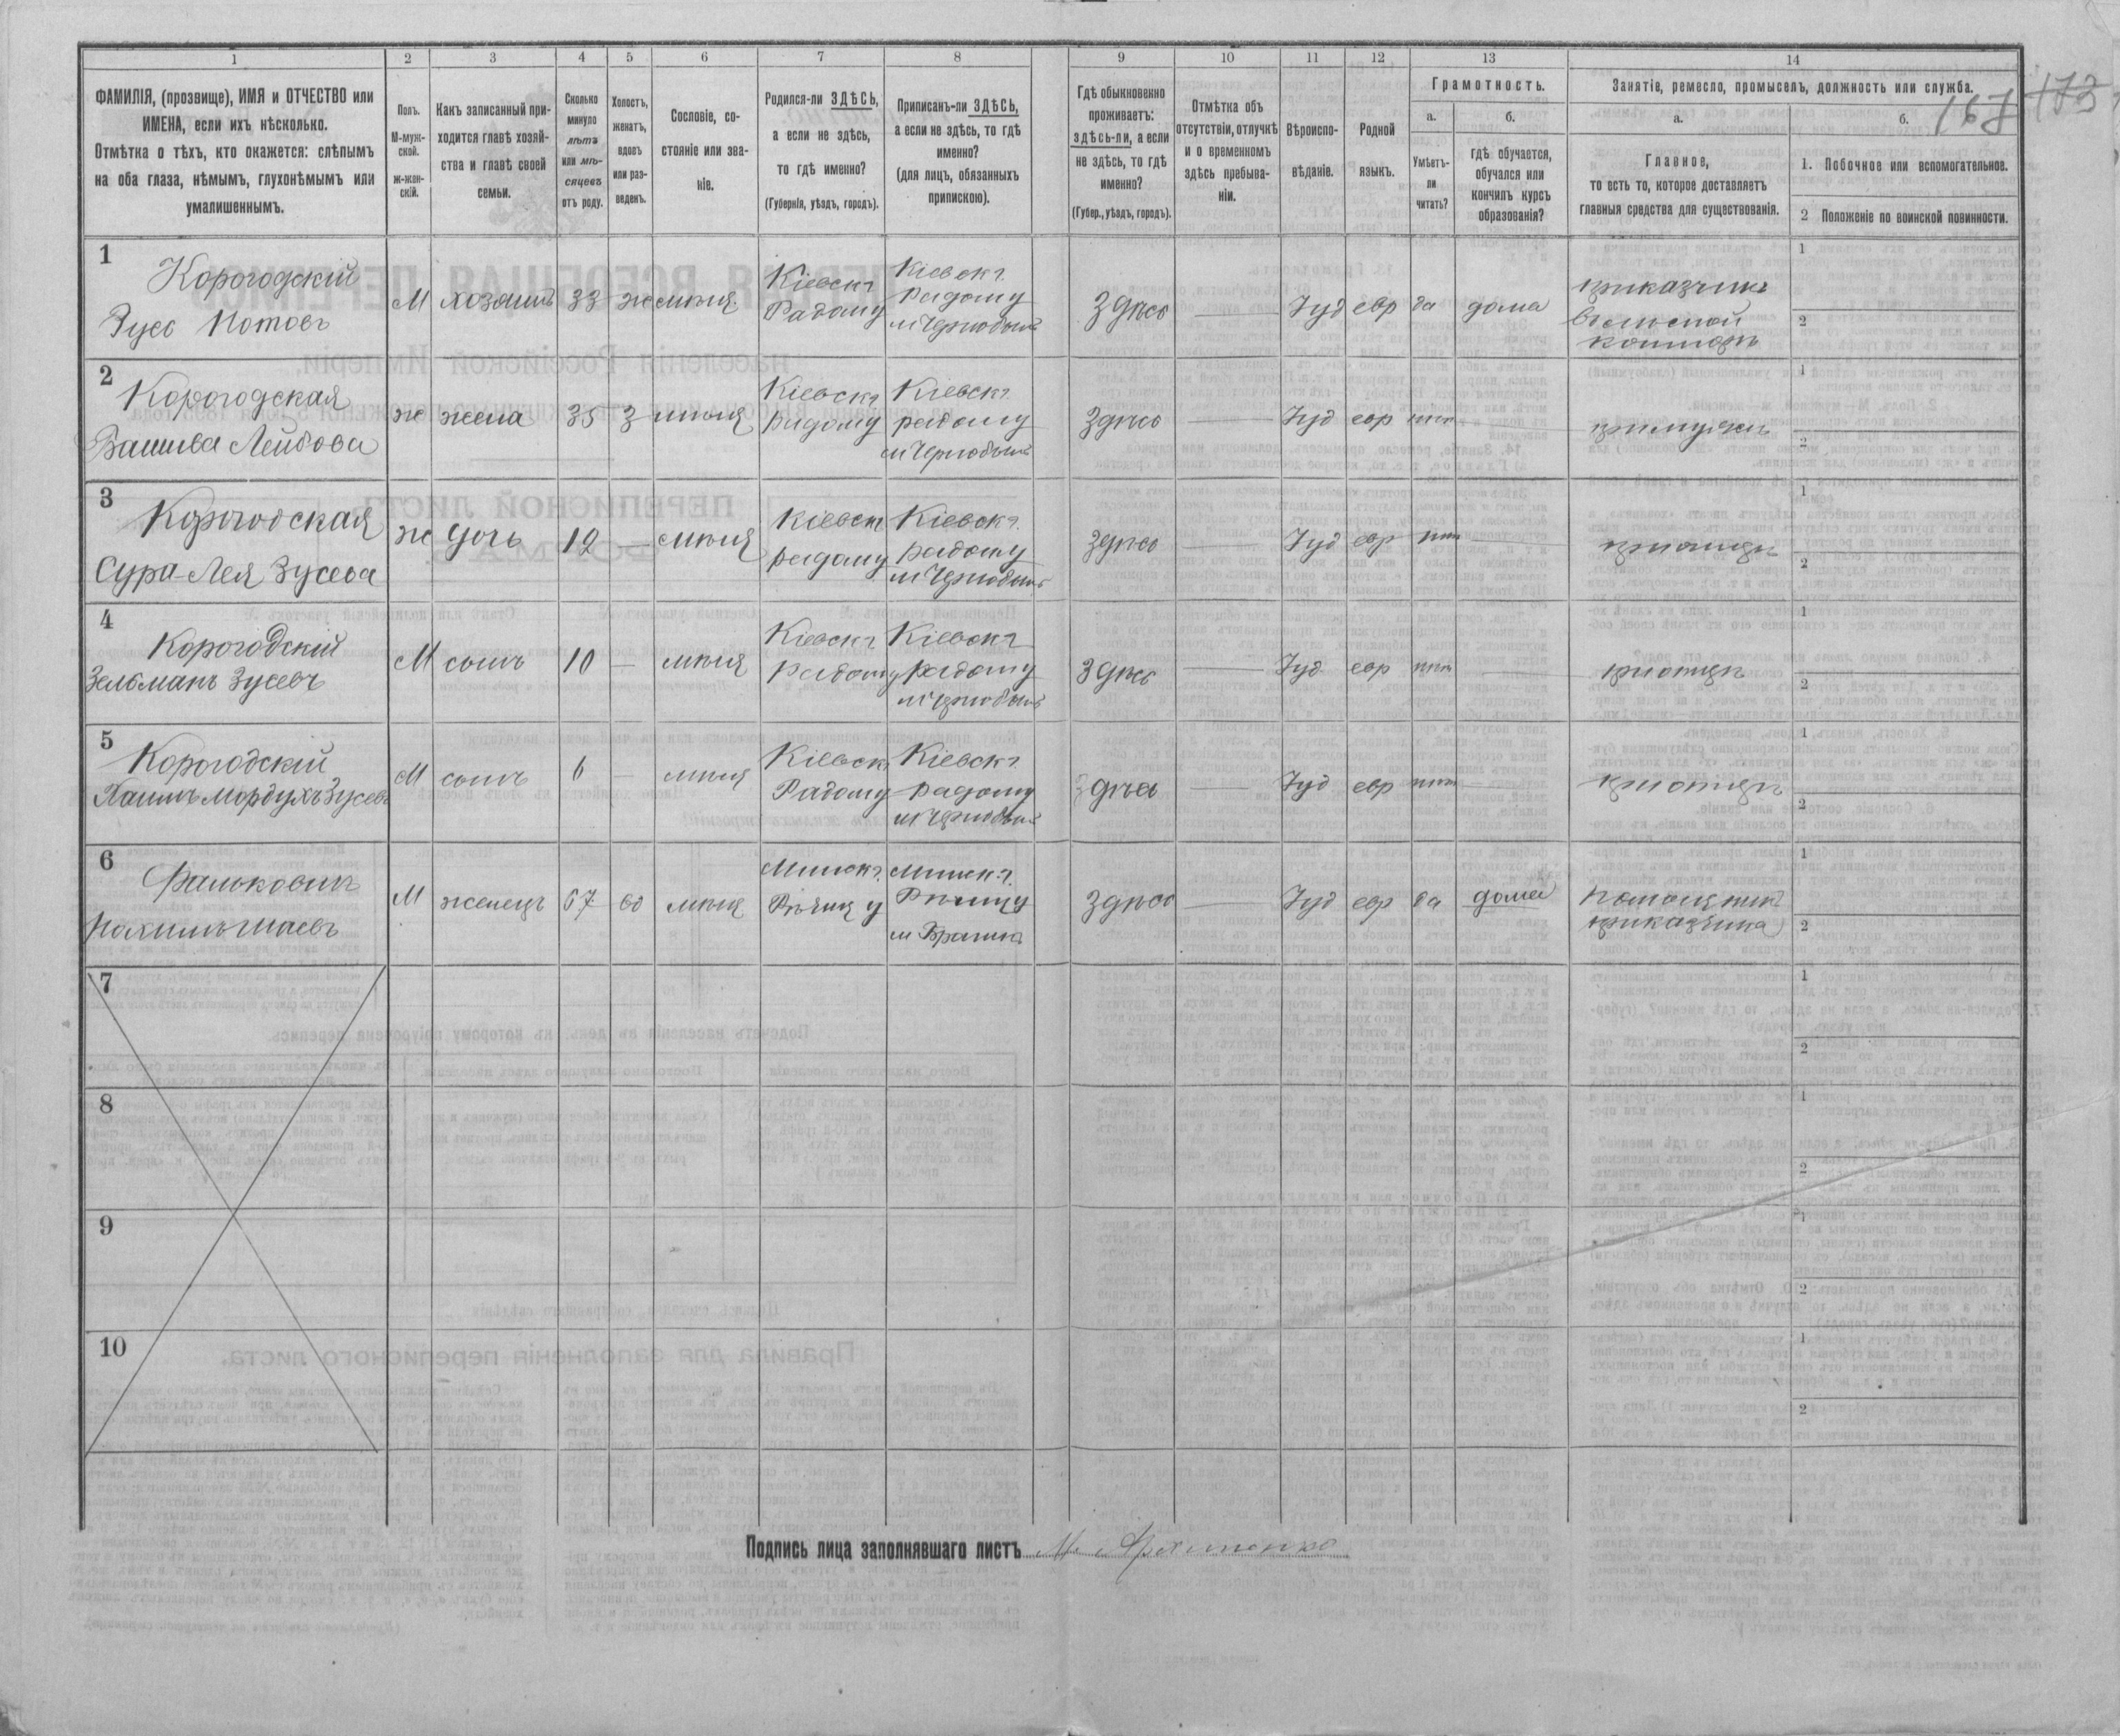 1 2 3 4 5 6 7 8 9 10 11 12 13 14
ФАМИЛІЯ, (прозвище), ИМЯ и ОТЧЕСТВО или
ИМЕНА, если ихъ нѣсколько.
Отмѣтка о тѣхъ, кто окажется: слѣпымъ
на оба глаза, нѣмымъ, глухонѣмымъ или
умалишеннымъ.
Полъ.
М-муж-
ской.
ж-жен-
скій.
Какъ записанный при-
ходится главѣ хозяй-
ства и главѣ своей
семьи.
Сколько
минуло
лѣтъ
или мѣ-
сяцевъ
отъ роду.
Холостъ,
женатъ,
вдовъ
или раз-
веденъ.
Сословіе, со-
стояніе или зва-
ніе.
Родился-ли ЗДѢСЬ,
а если не здѣсь,
то гдѣ именно?
(Губернія, уѣздъ, городъ).
Приписанъ-ли ЗДѢСЬ,
а если не здѣсь, то гдѣ
именно?
(для лицъ, обязанныхъ
припискою).
Гдѣ обыкновенно
проживаетъ:
здѣсь-ли, а если
не здѣсь, то гдѣ
именно?
(Губер., уѣздъ, городъ).
Отмѣтка объ
отсутствіи, отлучкѣ
и о временномъ
здѣсь пребыва-
ніи.
Вѣроиспо-
вѣданіе.
Родной
языкъ.
Грамотность.
а.
Умѣетъ-
ли
читать?
б.
гдѣ обучается,
обучался или
кончилъ курсъ
образованія?
Занятіе, ремесло, промыселъ, должность или служба.
а.
Главное,
то есть то, которое доставляетъ
главныя средства для существованія.
б.
1. Побочное или вспомогательное.
2 Положеніе по воинской повинности.
167 173
1
Корогодскій
Зусь Нотовъ
М хозяинъ 33 ж мѣщ.
Кіевск г
Радому
Кіевск г.
Радому
м Чернобыль
здѣсь Іуд евр да дома
приказчикъ
1
2
2
Корогодская
Лейбова
ж жена 35 З мѣщ
Кіевск г
Радому
Кіевск г.
радому
м Чернобыль
здѣсь Іуд евр нѣт
при мужѣ
1
2
3
Корогодская
Сура-Лея Зусева
ж дочь 12 — мѣщ
Кіевск
радому
Кіевск г.
радому
м Чернобыль
здѣсь Іуд евр нѣт
при отцѣ
1
2
4
Корогодскій
Зельманъ Зусевъ
М сынъ 10 — мѣщ
Кіевск г
Радому
Кіевск г
радому
м Чернобыль
здѣсь Іуд евр нѣт
при отцѣ
1
2
5
Корогодскій
Хаимъ Мордухъ Зусевъ
М сынъ 6 — мѣщ
Кіевск
Радому
Кіевск г.
радому
м Чернобыль
здѣсь Іуд евр нѣт
при отцѣ
1
2
6
Фальковичъ
М 67 вд мѣщ
Минск г.
Рѣчиц у
Минск г.
Рѣчицу
м Брагинъ
здѣсь Іуд евр да дома
помощник
приказчика
1
2
7
1
2
8
1
2
9
1
2
10
1
2
Подпись лица заполнявшаго листъ